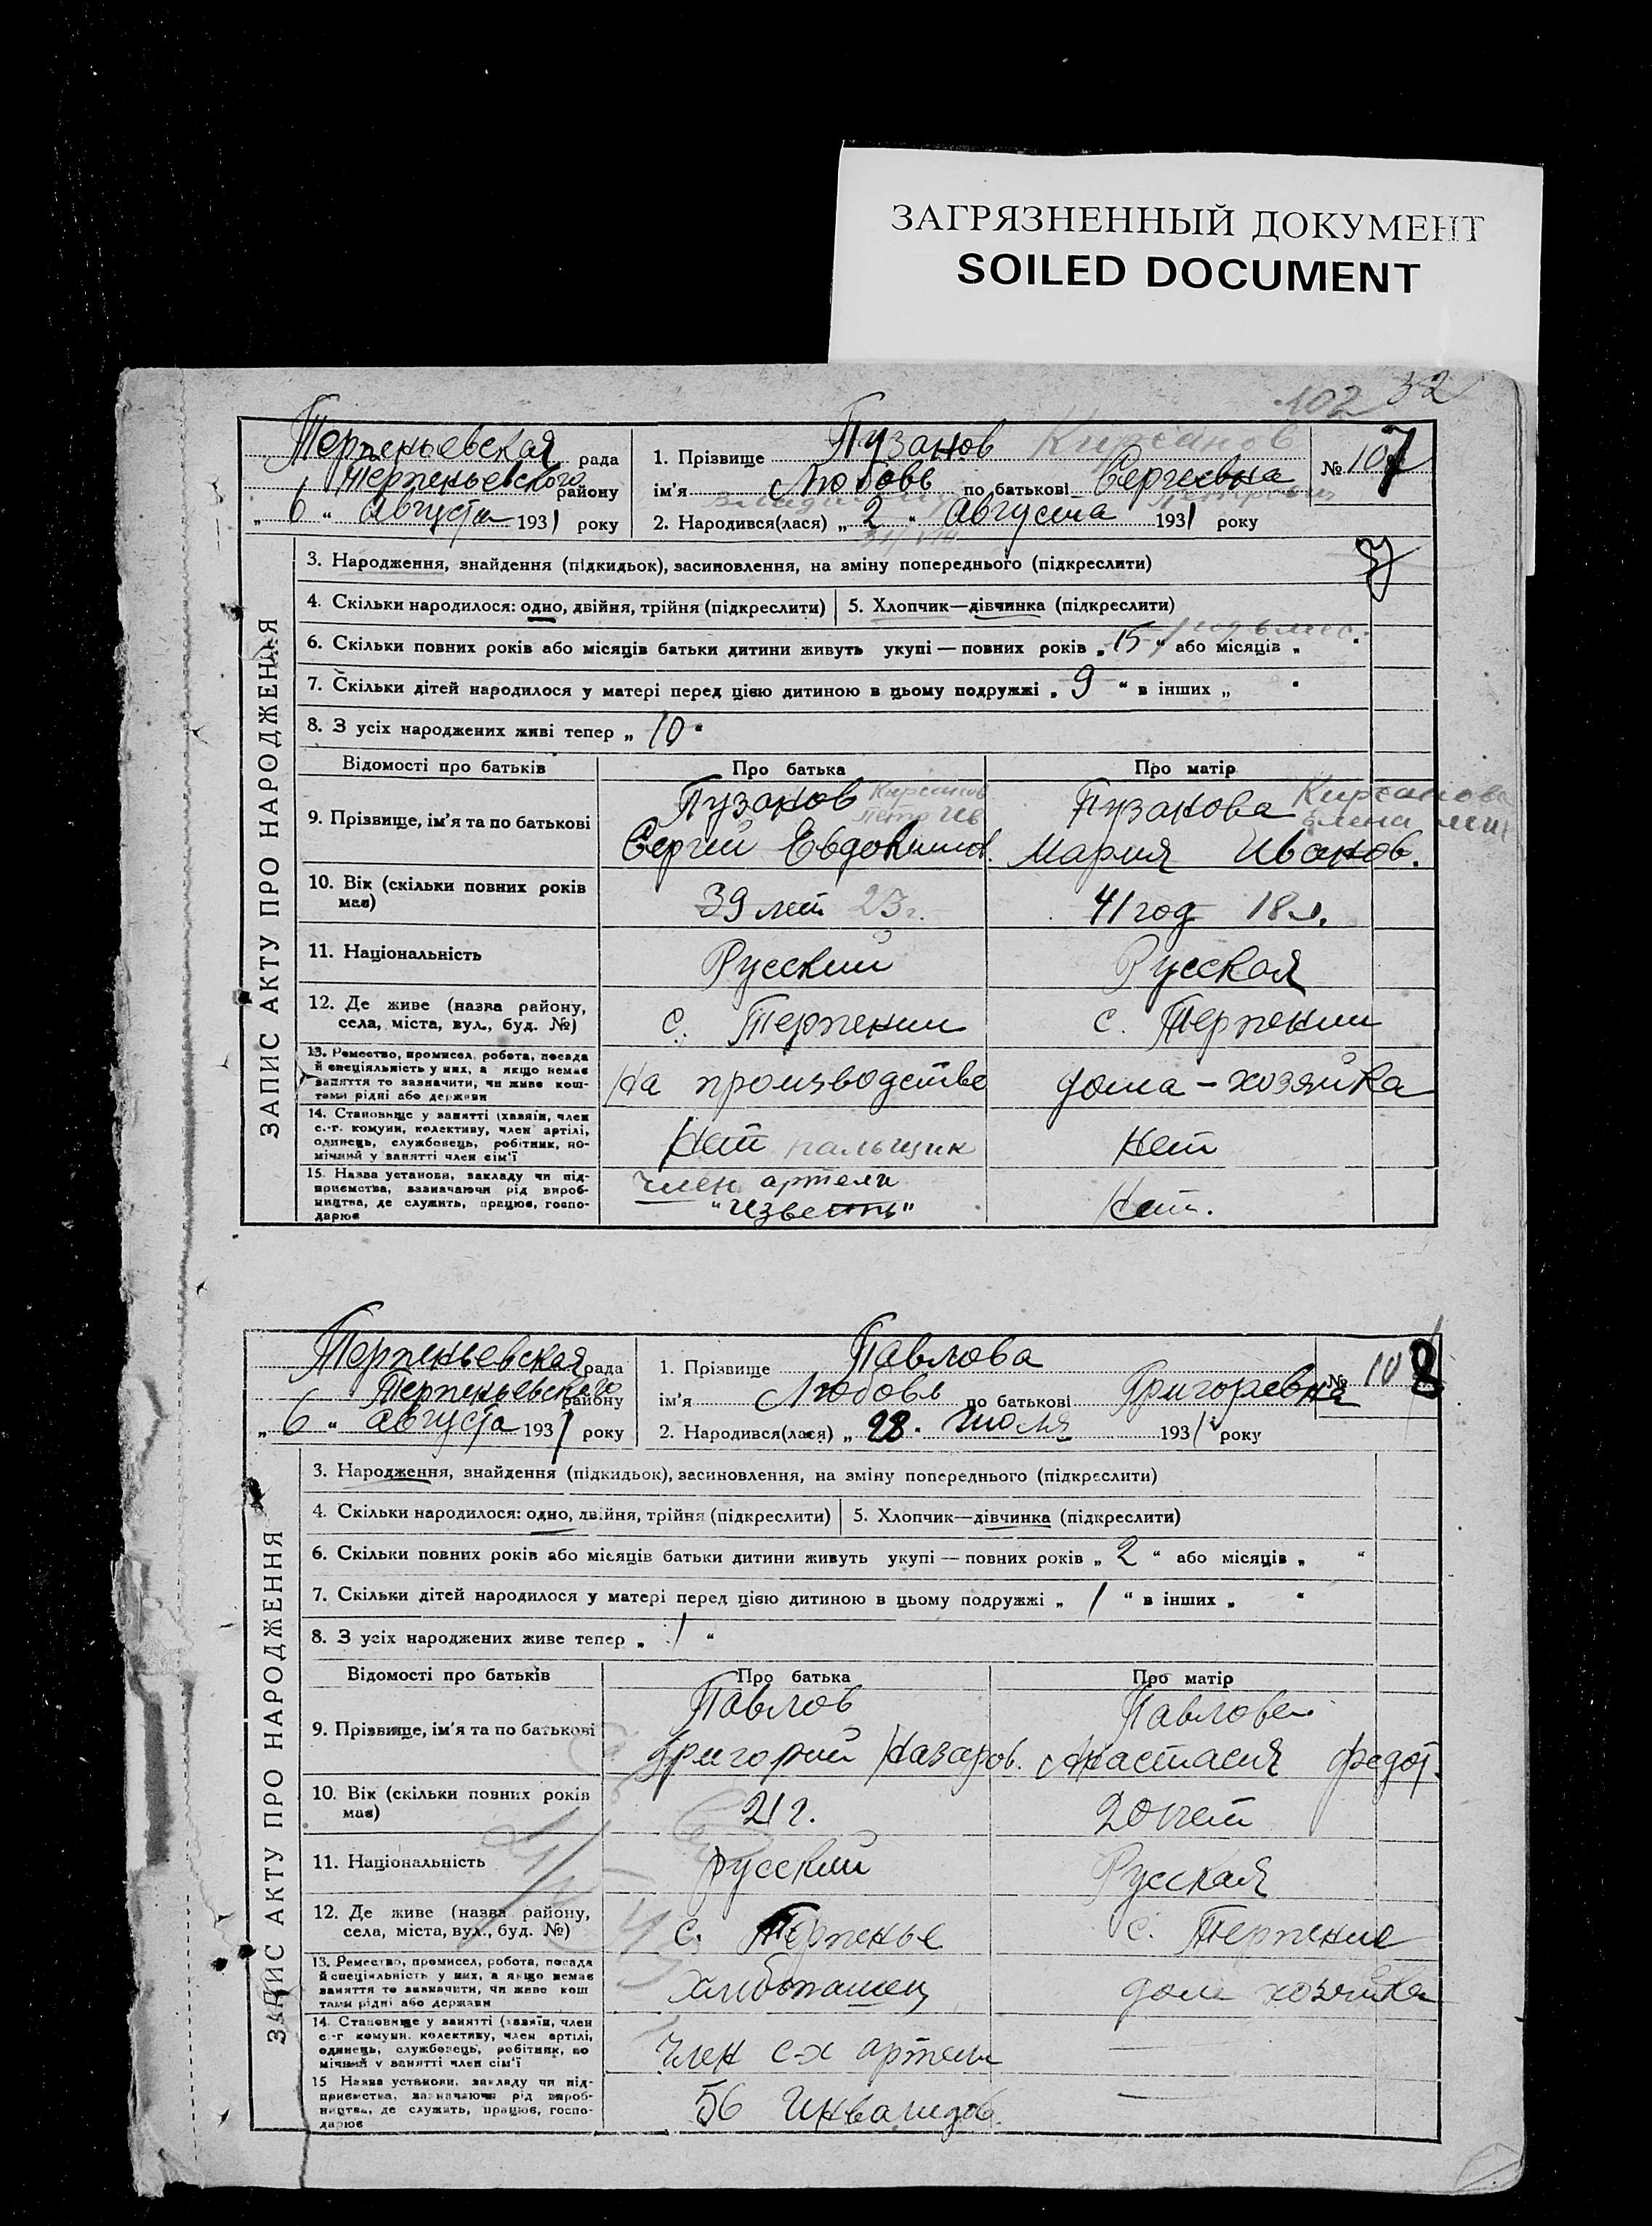 ЗАГРЯЗНЕННЫЙ ДОКУМЕНТ
SOILED DOCUMENT
102 32
Терпеньевская рада
Терпеньевского району
„ 6 “ Августа 1931 року
1. Прізвище Пузанов Кирсанов
№ 107
ім'я Любовь по батькові Сергеевна
Петрович
2. Народився(лася) „ 2 “ Августа 1931 року
31/VIII
ЗАПИС АКТУ ПРО НАРОДЖЕННЯ
3. Народження, знайдення (підкидьок), засиновлення, на зміну попереднього (підкреслити)
4. Скільки народилося: одно, двійня, трійня (підкреслити)
5. Хлопчик—дівчинка (підкреслити)
6. Скільки повних років або місяців батьки дитини живуть укупі — повних років „ 15 “ або місяців „ “
7. Скільки дітей народилося у матері перед цією дитиною в цьому подружжі „ 9 “ в інших „ “
8. З усіх народжених живі тепер „ 10 “
Відомості про батьків
Про батька
Про матір
9. Прізвище, ім'я та по батькові
Пузанов Кирсанов
Петр Ив
Сергей Евдоким.
Пузанова Кирсанова
Елена
Мария Иванов.
10. Вік (скільки повних років має)
39 лет 23 г.
41 год 18 л.
11. Національність
Русский
Русская
12. Де живе (назва району,
села, міста, вул., буд. №)
с. Терпении
с. Терпении
13. Ремество, промисел, робота, посада
й спеціяльність у них, а якщо немає
заняття то зазначити, чи живе кош-
тами рідні або держави
На производстве
дома - хозяйка
14. Становище у занятті (хазяїн, член
с.-г. комуни, колективу, член артілі,
одинець, службовець, робітник, по-
мічний у занятті член сім'ї
Нет пальщик
Нет
15. Назва установи, закладу чи під-
приємства, зазначаючи рід вироб-
ництва, де служить, працює, госпо-
дарює
член артели
"Известь"
Нет.
Терпеньевская рада
Терпеньевского району
„ 6 “ августа 1931 року
1. Прізвище Павлова
№ 108
ім'я Любовь по батькові Григоревна
2. Народився(лася) „ 28 “ Июля 1931 року
ЗАПИС АКТУ ПРО НАРОДЖЕННЯ
3. Народження, знайдення (підкидьок), засиновлення, на зміну попереднього (підкреслити)
4. Скільки народилося: одно, двійня, трійня (підкреслити)
5. Хлопчик—дівчинка (підкреслити)
6. Скільки повних років або місяців батьки дитини живуть укупі — повних років „ 2 “ або місяців „ “
7. Скільки дітей народилося у матері перед цією дитиною в цьому подружжі „ 1 “ в інших „ “
8. З усіх народжених живе тепер „ 1 “
Відомості про батьків
Про батька
Про матір
9. Прізвище, ім'я та по батькові
Павлов
Григорий Назаров.
Павлова
Анастасия Федот.
10. Вік (скільки повних років має)
21 г.
20 лет
11. Національність
русский
Русская
12. Де живе (назва району,
села, міста, вул., буд. №)
с. Терпенье
с. Терпение
13. Ремество, промисел, робота, посада
й спеціяльність у них, а якщо немає
заняття то зазначити, чи живе кош
тами рідні або держави
хлибопашец
дом хозяйка
14. Становище у занятті (хазяїн, член
с.-г комуни, колективу, член артілі,
одинець, службовець, робітник, по
мічний у занятті член сім'ї
Член с-х артели
—
15 Назва установи, закладу чи під-
приємства, зазначаючи рід вироб-
ництва, де служить, працює, госпо-
дарює
56 Инвалидов.
—